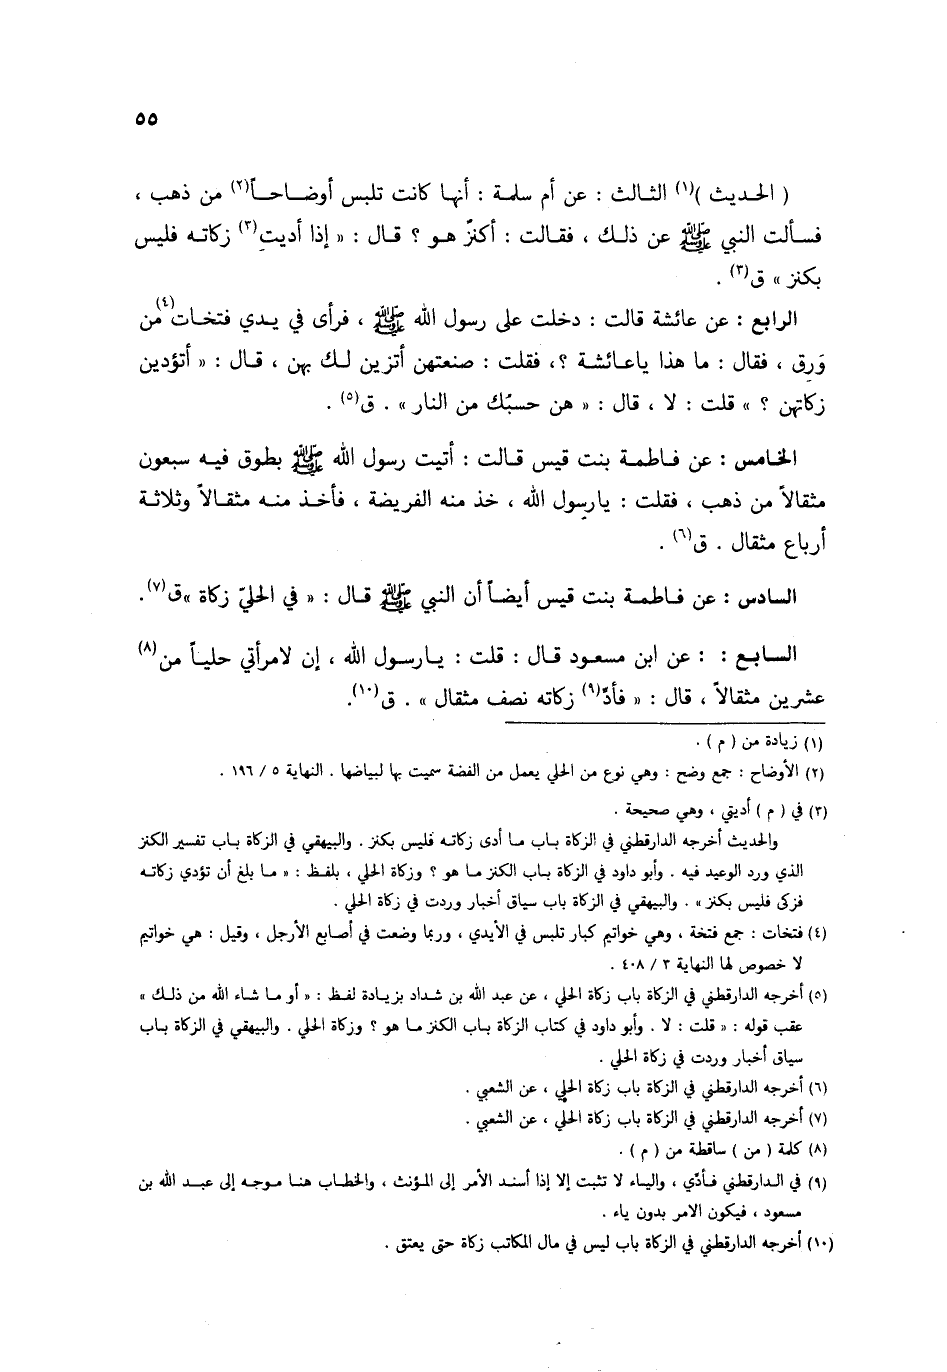 ٥٥
( الحديث )(١) الثالث : عن أم سلمة : أنها كانت تلبس أوضاحاً(٢) من ذهب ،
فسألت النبي ﷺ عن ذلك ، فقالت : أكنزٌ هو ؟ قال : « إذا أديتِ(٣) زكاته فليس
بكنز » ق(٣) .
الرابع : عن عائشة قالت : دخلت على رسول الله ﷺ ، فرأى في يدي فتخات(٤) من
وَرِق ، فقال : ما هذا ياعائشة ؟، فقلت : صنعتهن أتزين لك بهن ، قال : « أتؤدين
زكاتهن ؟ » قلت : لا ، قال : « هن حسبُك من النار » . ق(٥) .
الخامس : عن فاطمة بنت قيس قالت : أتيت رسول الله ﷺ بطوق فيه سبعون
مثقالاً من ذهب ، فقلت : يارسول الله ، خذ منه الفريضة ، فأخذ منه مثقالاً وثلاثة
أرباع مثقال . ق(٦) .
السادس : عن فاطمة بنت قيس أيضاً أن النبي ﷺ قال : « في الحليّ زكاة »ق(٧).
السابع : : عن ابن مسعود قال : قلت : يارسول الله ، إن لامرأتي حلياً من(٨)
عشرين مثقالاً ، قال : « فأدّ(٩) زكاته نصف مثقال » . ق(١٠).
(١) زيادة من ( م ) .
(٢) الأوضاح : جمع وضح : وهي نوع من الحلي يعمل من الفضة سميت بها لبياضها . النهاية ٥ / ١٩٦ .
(٣) في ( م ) أديتي ، وهي صحيحة .
والحديث أخرجه الدارقطني في الزكاة باب ما أدى زكاته فليس بكنز . والبيهقي في الزكاة باب تفسير الكنز
الذي ورد الوعيد فيه . وأبو داود في الزكاة باب الكنز ما هو ؟ وزكاة الحلي ، بلفظ : « ما بلغ أن تؤدي زكاته
فزكى فليس بكنز » . والبيهقي في الزكاة باب سياق أخبار وردت في زكاة الحلي .
(٤) فتخات : جمع فتخة ، وهي خواتيم كبار تلبس في الأيدي ، وربما وضعت في أصابع الأرجل ، وقيل : هي خواتيم
لا خصوص لها النهاية ٣ / ٤٠٨ .
(٥) أخرجه الدارقطني في الزكاة باب زكاة الحلي ، عن عبد الله بن شداد بزيادة لفظ : « أو ما شاء الله من ذلك »
عقب قوله : « قلت : لا . وأبو داود في كتاب الزكاة باب الكنز ما هو ؟ وزكاة الحلي . والبيهقي في الزكاة باب
سياق أخبار وردت في زكاة الحلي .
(٦) أخرجه الدارقطني في الزكاة باب زكاة الحلي ، عن الشعبي .
(٧) أخرجه الدارقطني في الزكاة باب زكاة الحلي ، عن الشعبي .
(٨) كلمة ( من ) ساقطة من ( م ) .
(٩) في الدارقطني فأدّي ، والياء لا تثبت إلا إذا أسند الأمر إلى المؤنث ، والخطاب هنا موجه إلى عبد الله بن
مسعود ، فيكون الامر بدون ياء .
(١٠) أخرجه الدارقطني في الزكاة باب ليس في مال المكاتب زكاة حتى يعتق .